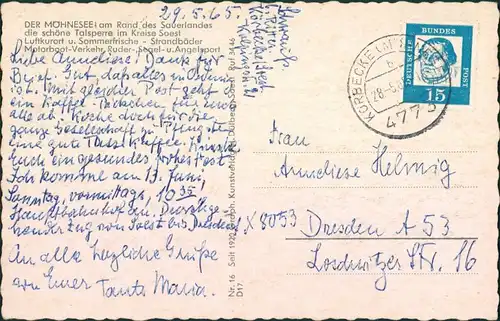 DER MÖHNESEE am Rand des Sauerlandes
die schöne Talsperre im Kreise Soest
Luftkurort u. Sommerfrische - Strandbäder
Motorboot-Verkehr, Ruder-, Segel- u. Angelsport
29.5.65.
Liebe Anneliese! Dank für
Brief. Gut, daß alles in Ordnung
ist. Mit gleicher Post geht
ein Kaffee-Päckchen für
alle ab. Koche doch für die
ganze Gesellschaft zu Pfingsten
eine gute Tasse Kaffee. Wünsche
Euch ein gesundes frohes Fest
Ich komme am 13. Juni,
Sonntag, vormittags, 10 35
Hauptbahnhof an.
von Soest bis Dresden.
An alle herzliche Grüße
von Eurer Tante Maria.
Nr. 16 Seit 1922
D17.
KÖRBECKE
28.-5.6
4773
DEUTSCHE BUNDES POST
15
Frau
Anneliese Helmig
X 8053
Dresden A 53
Loschwitzer Str. 16